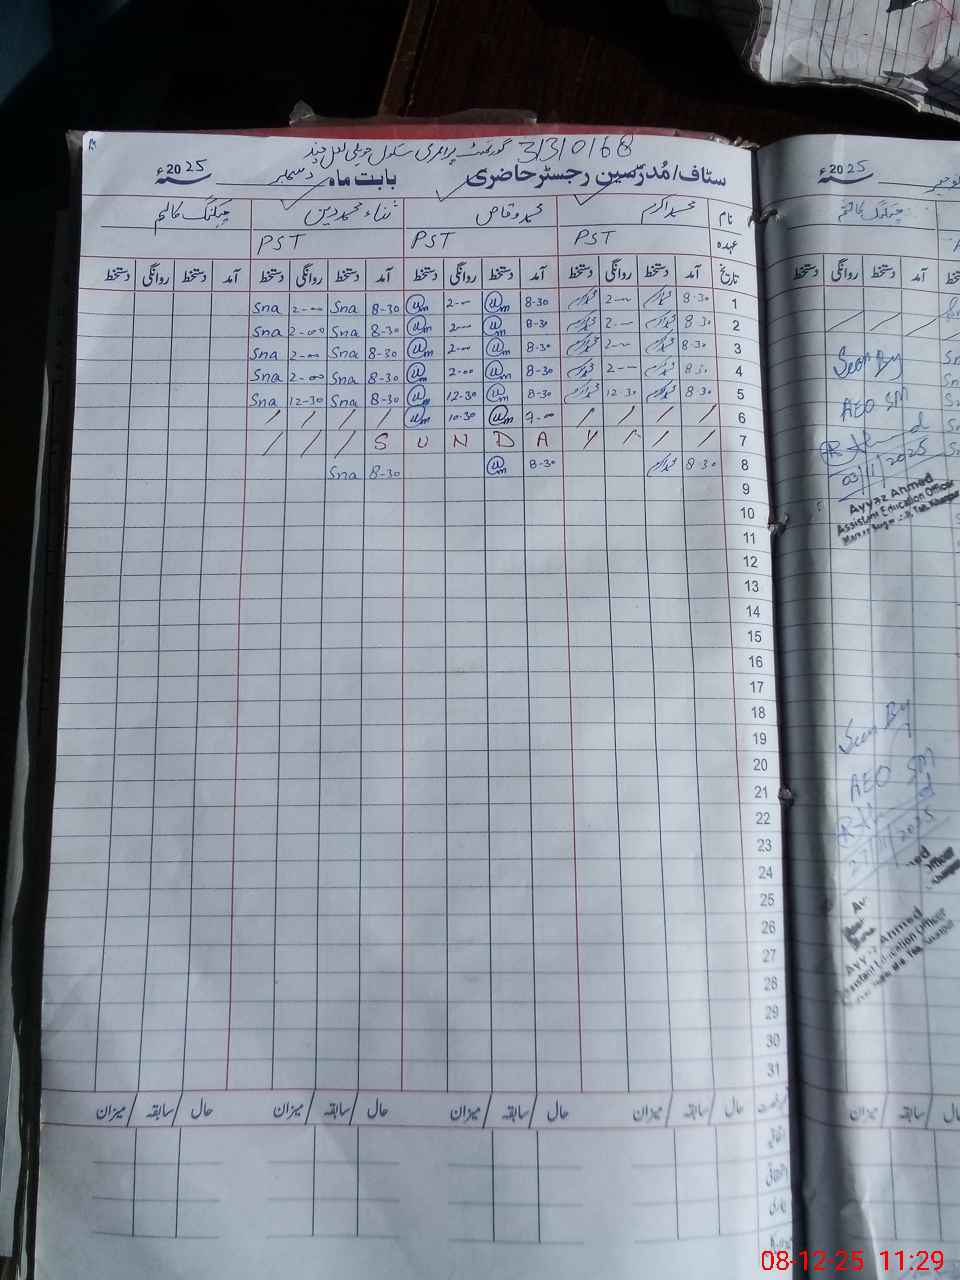 گورنمنٹ پرائمری سکول حویلی لعل چند 31310168
سٹاف/مُدرّسین رجسٹر حاضری بابت ماہ دسمبر سنہ 2025ء
نام محمد اکرم محمد وقاص ثناء محمد دین چیکنگ کالم
عہدہ PST PST PST
تاریخ آمد دستخط روانگی دستخط آمد دستخط روانگی دستخط آمد دستخط روانگی دستخط آمد دستخط روانگی دستخط
1 8-30 2-00 8-30 2-00 8-30 Sna 2-00 Sna
2 8-30 2-00 8-30 2-00 8-30 Sna 2-00 Sna
3 8-30 2-00 8-30 2-00 8-30 Sna 2-00 Sna
4 8-30 2-00 8-30 2-00 8-30 Sna 2-00 Sna
5 8-30 12-30 8-30 12-30 8-30 Sna 12-30 Sna
6 / / / / 7-00 10-30 / / / /
7 / / / S U N D A Y / / /
8 8-30 8-30 8-30 Sna
9
10
11
12
13
14
15
16
17
18
19
20
21
22
23
24
25
26
27
28
29
30
31
حال / سابقہ / میزان حال / سابقہ / میزان حال / سابقہ / میزان حال / سابقہ / میزان
سنہ 2025ء
چیکنگ کالم
آمد دستخط روانگی دستخط
Seen By
AEO SM
03/11/2025
Ayyaz Ahmed
Assistant Education Officer
Seen By
AEO SM
Ayyaz Ahmed
Assistant Education Officer
حال / سابقہ / میزان
08-12-25 11:29